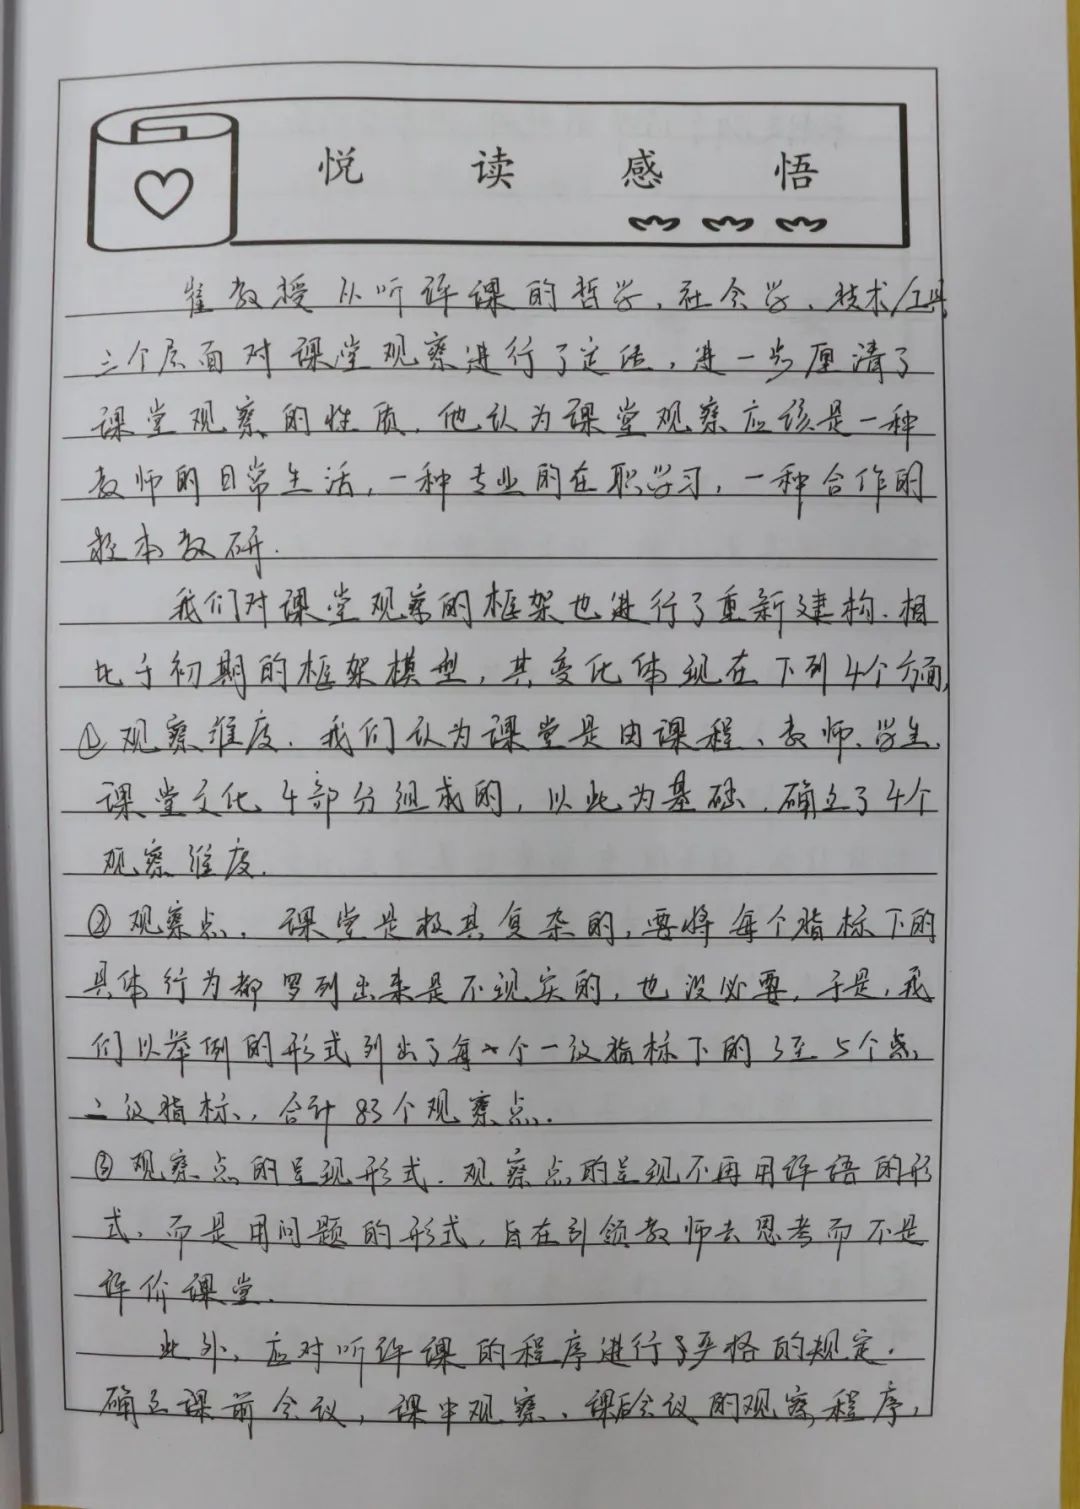 悦读感悟
崔教授从听评课的哲学、社会学、技术/工具
三个层面对课堂观察进行了定位，进一步厘清了
课堂观察的性质.他认为课堂观察应该是一种
教师的日常生活，一种专业的在职学习，一种合作的
校本教研.
我们对课堂观察的框架也进行了重新建构.相
比于初期的框架模型，其变化体现在下列4个方面，
①观察维度.我们认为课堂是由课程、教师、学生、
课堂文化4部分组成的，以此为基础，确立了4个
观察维度.
②观察点.课堂是极其复杂的，要将每个指标下的
具体行为都罗列出来是不现实的，也没必要，于是，我
们以举例的形式列出了每个一级指标下的3至5个点
二级指标，合计83个观察点.
③观察点的呈现形式.观察点的呈现不再用评语的形
式，而是用问题的形式，旨在引领教师去思考而不是
评价课堂.
此外，应对听评课的程序进行了严格的规定.
确立课前会议，课中观察、课后会议的观察程序，